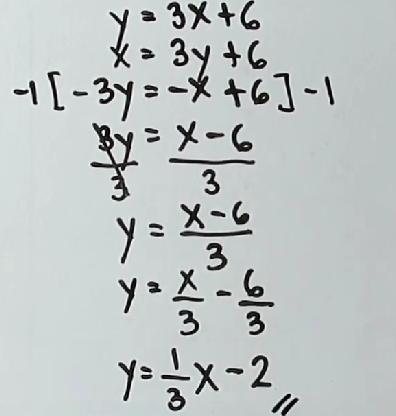 y = 3x + 6
x = 3y + 6
-1 [ -3y = -x + 6 ] -1
3y/3 = x - 6/3
y = x - 6/3
y = x/3 - 6/3
y = 1/3 x - 2 //